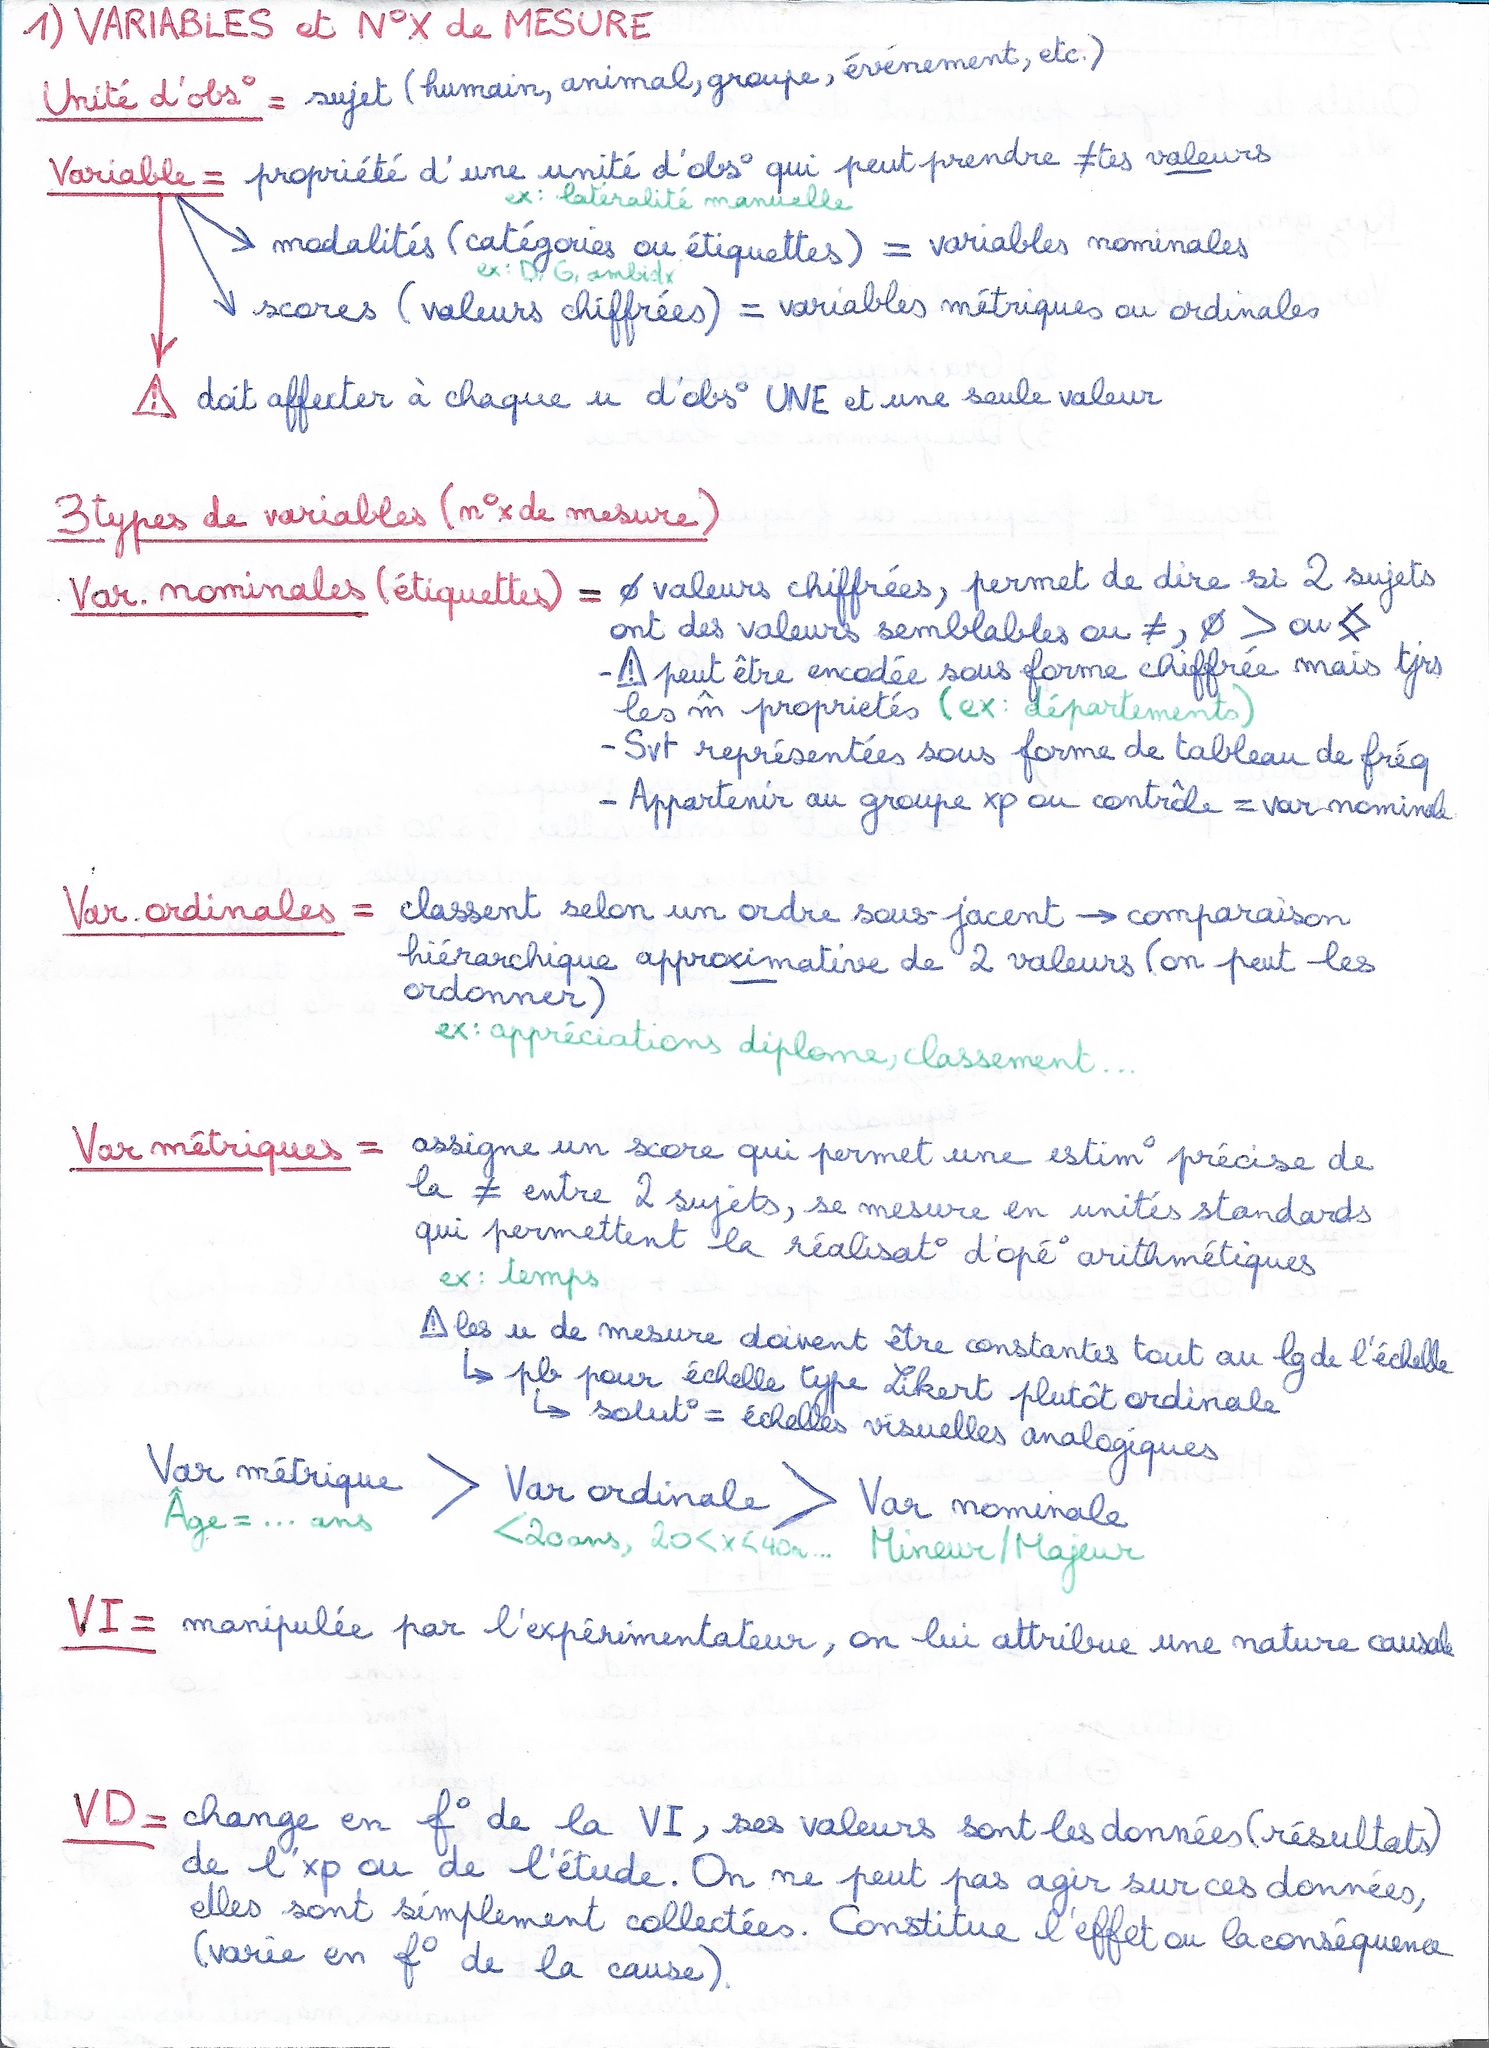 1) VARIABLES et N°X de MESURE
Unité d'obs° = sujet (humain, animal, groupe, événement, etc.)
Variable = propriété d'une unité d'obs° qui peut prendre ≠tes valeurs
ex: latéralité manuelle
modalités (catégories ou étiquettes) = variables nominales
ex: D, G, ambidx
scores (valeurs chiffrées) = variables métriques ou ordinales
⚠ doit affecter à chaque u d'obs° UNE et une seule valeur
3 types de variables (n°x de mesure)
Var. nominales (étiquettes) = ∅ valeurs chiffrées, permet de dire si 2 sujets
ont des valeurs semblables ou ≠, ∅ > ou <
- ⚠ peut être encodée sous forme chiffrée mais tjrs
les m̂ proprietés (ex: départements)
- Svt représentées sous forme de tableau de fréq
- Appartenir au groupe xp ou contrôle = var nominale
Var. ordinales = classent selon un ordre sous-jacent → comparaison
hiérarchique approximative de 2 valeurs (on peut les
ordonner)
ex: appréciations diplome, classement...
Var métriques = assigne un score qui permet une estim° précise de
la ≠ entre 2 sujets, se mesure en unités standards
qui permettent la réalisat° d'opé° arithmétiques
ex: temps
⚠ les u de mesure doivent être constantes tout au lg de l'échelle
↳ pb pour échelle type Likert plutôt ordinale
↳ solut° = échelles visuelles analogiques
Var métrique > Var ordinale > Var nominale
Âge = ... ans <20ans, 20<x<40a... Mineur/Majeur
VI = manipulée par l'expérimentateur, on lui attribue une nature causale
VD = change en f° de la VI, ses valeurs sont les données (résultats)
de l'xp ou de l'étude. On ne peut pas agir sur ces données,
elles sont simplement collectées. Constitue l'effet ou la conséquence
(varie en f° de la cause).